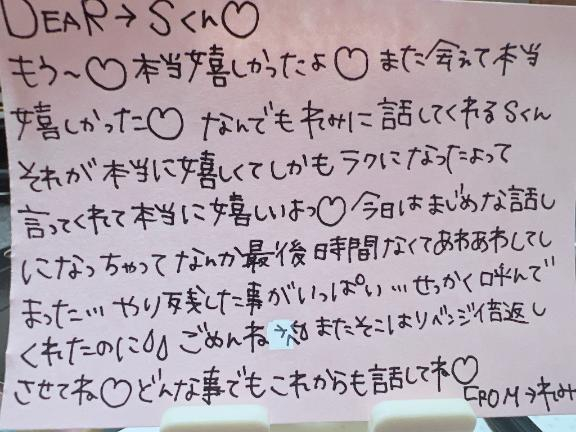 DEAR→Sくん♡
もう〜♡本当嬉しかったよ♡また会えて本当
嬉しかった♡なんでもれみに話してくれるSくん
それが本当に嬉しくてしかもラクになったよって
言ってくれて本当に嬉しいよっ♡今日はまじめな話し
になっちゃってなんか最後時間なくてあわあわしてし
まった…やり残した事がいっぱい…せっかく呼んで
くれたのに ごめんね またそこはリベンジ倍返し
させてね♡どんな事でもこれからも話してね♡
FROM→れみ